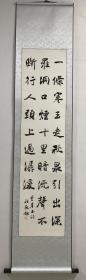 一條寒玉走秋泉引出深
蘿洞口煙十里暗流聲不
斷行人頭上過潺湲